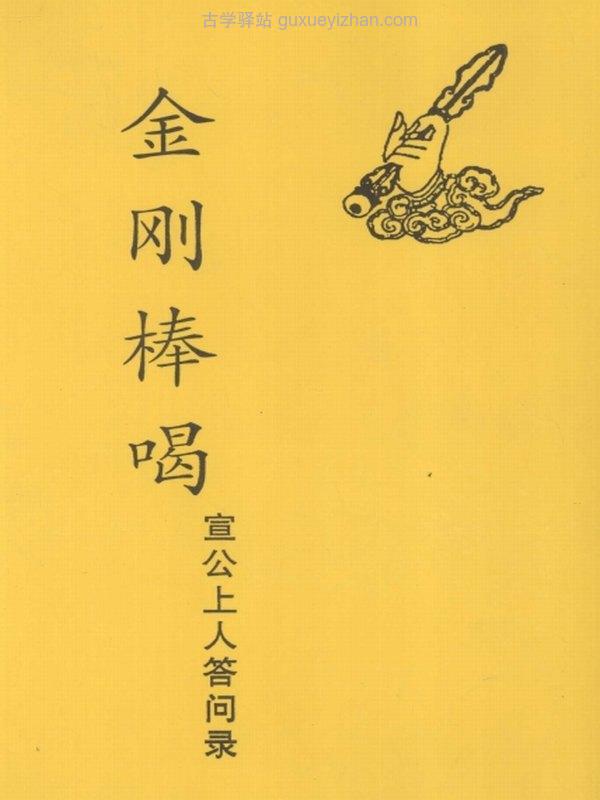 古学驿站 guxueyizhan.com
金刚棒喝
宣公上人答问录